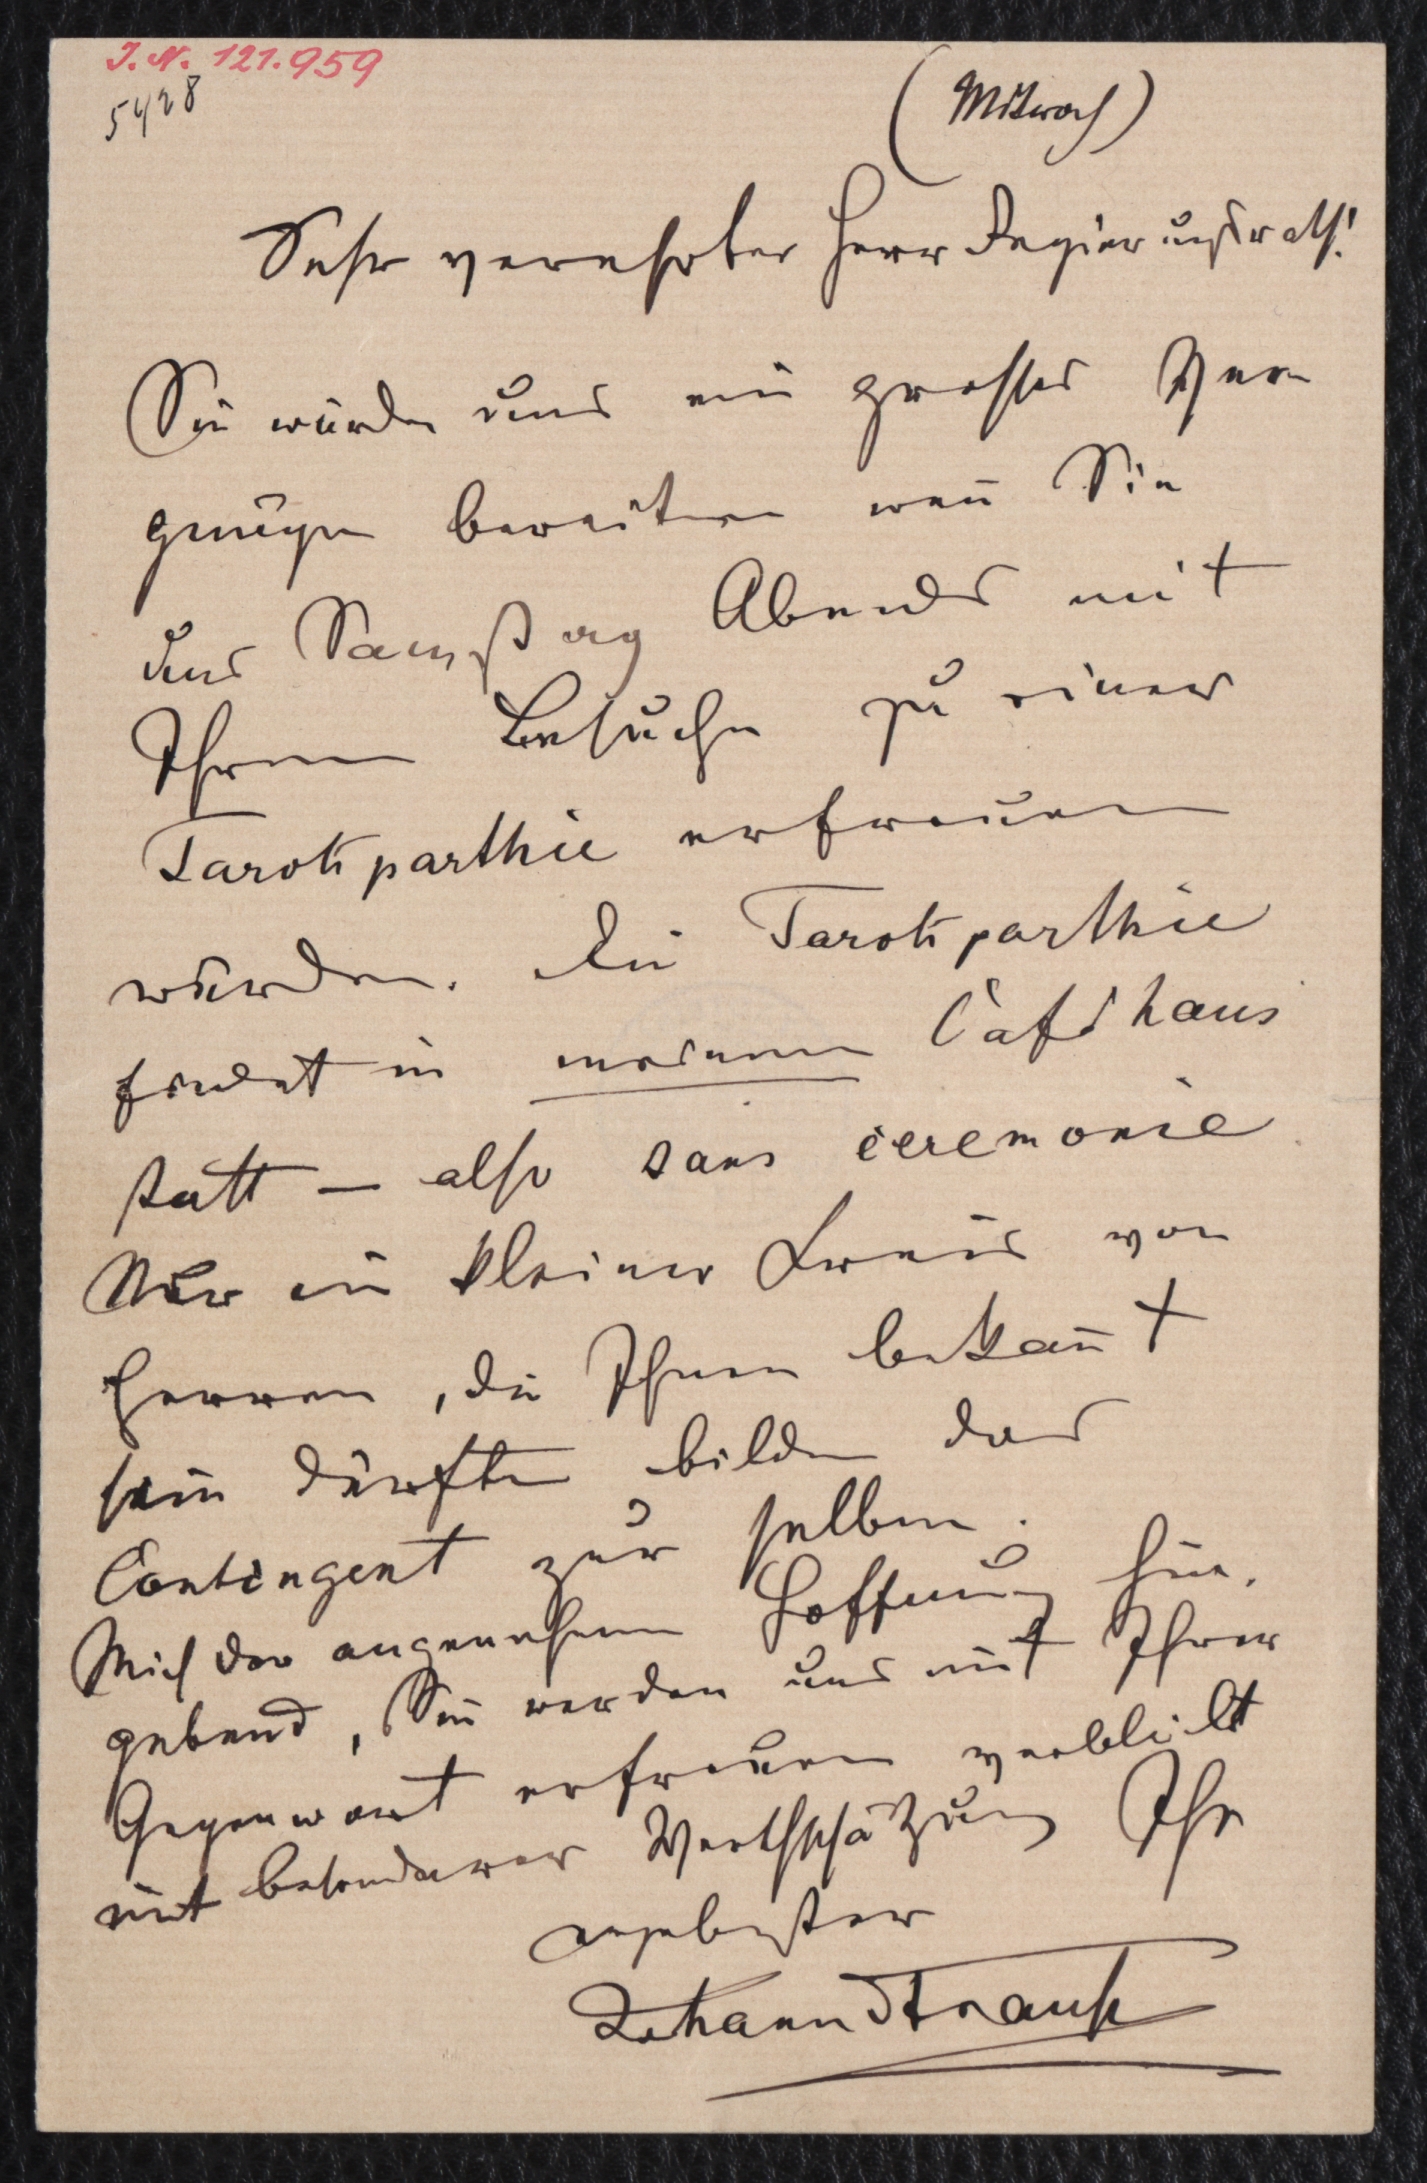 I. N. 121.959
5428
(Mitwoch)
Sehr verehrter Herr Regierungsrath!
Sie würden uns ein grosses Ver
gnügen bereiten weñ Sie
uns Samstag Abends mit
Ihrem Besuche zu einer
Tarokparthie erfreuen
würden. Die Tarokparthie
findet in meinem Caféhaus
statt — also sans ceremonie
Nur ein kleiner Kreis von
Herren, die Ihnen bekañt
sein dürften bilden das
Contingent zur selben.
Mich der angenehmen Hoffnung hin.
gebend, Sie werden uns mit Ihrer
Gegenwart erfreuen verbleibt
mit besonderer Werthschätzung Ihr
ergebenster
Johann Strauss